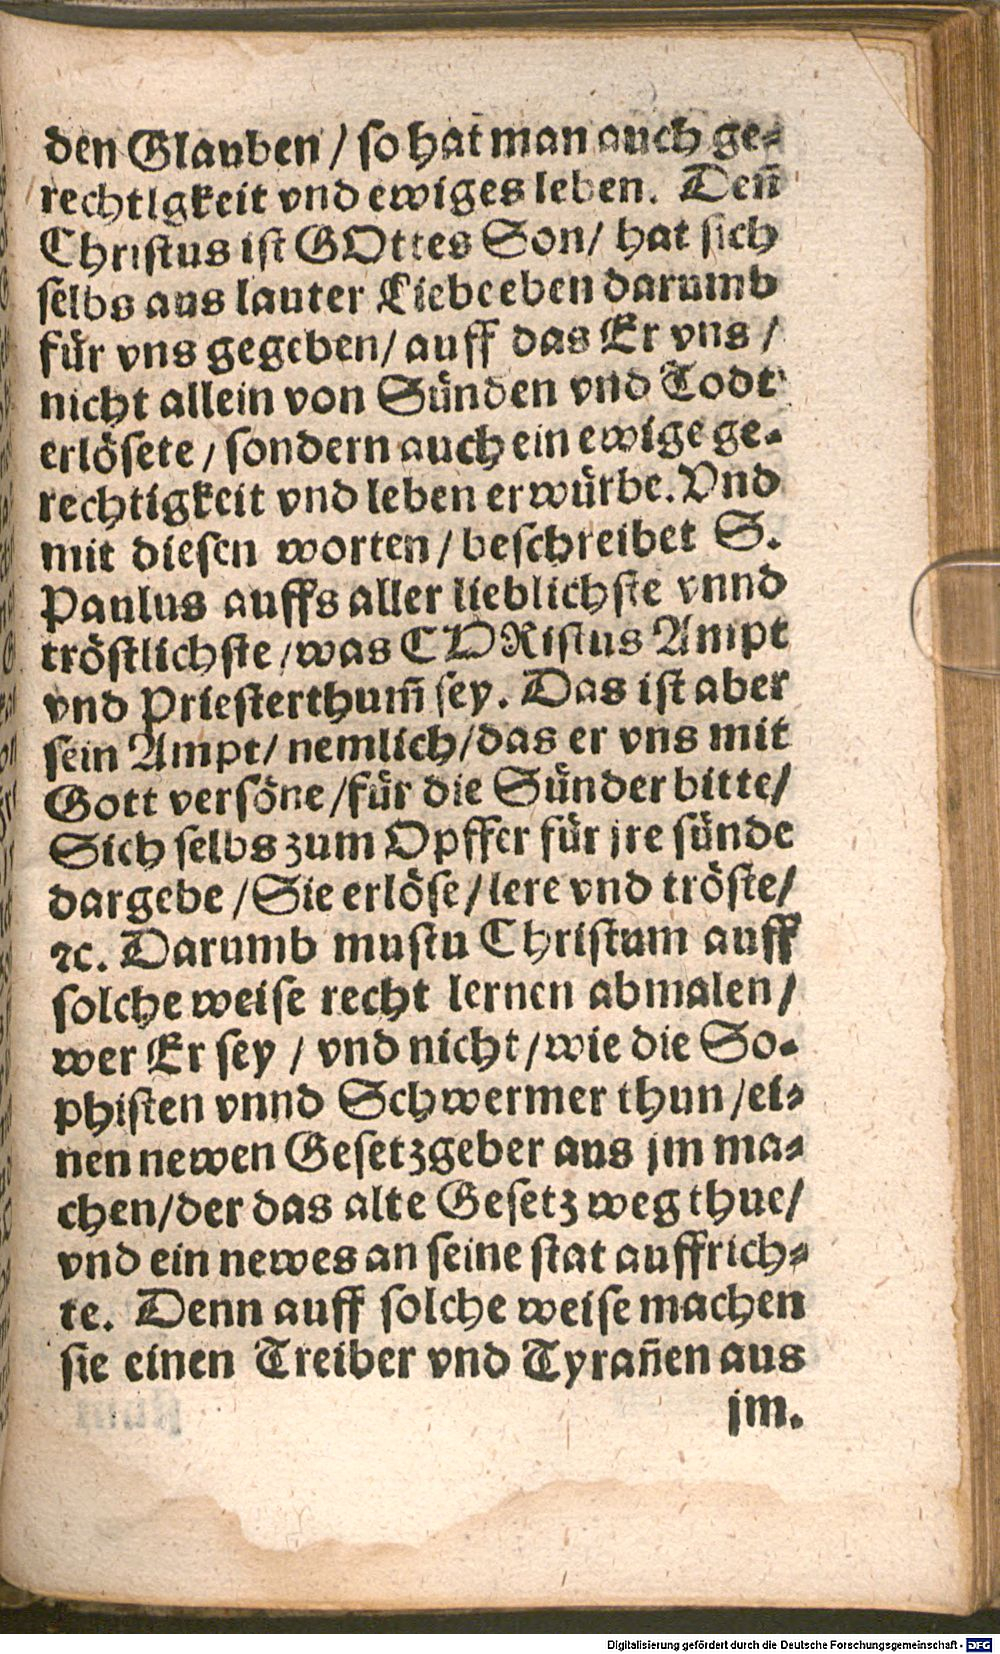 den Glauben / so hat man auch ge-
rechtigkeit vnd ewiges leben. Deñ
Christus ist GOttes Son / hat sich
selbs aus lauter Liebe eben darumb
für vns gegeben / auff das Er vns /
nicht allein von Sünden vnd Todt
erlösete / sondern auch ein ewige ge-
rechtigkeit vnd leben erwürbe. Vnd
mit diesen worten / beschreibet S.
Paulus auffs aller lieblichste vnnd
tröstlichste / was CHRistus Ampt
vnd Priesterthum̃ sey. Das ist aber
sein Ampt / nemlich / das er vns mit
Gott versöne / für die Sünder bitte /
Sich selbs zum Opffer für jre sünde
dargebe / Sie erlöse / lere vnd tröste /
ꝛc. Darumb mustu Christum auff
solche weise recht lernen abmalen /
wer Er sey / vnd nicht / wie die So-
phisten vnnd Schwermer thun / ei-
nen newen Gesetzgeber aus jm ma-
chen / der das alte Gesetz weg thue /
vnd ein newes an seine stat auffrich-
te. Denn auff solche weise machen
sie einen Treiber vnd Tyrañen aus
jm.
Digitalisierung gefördert durch die Deutsche Forschungsgemeinschaft - DFG